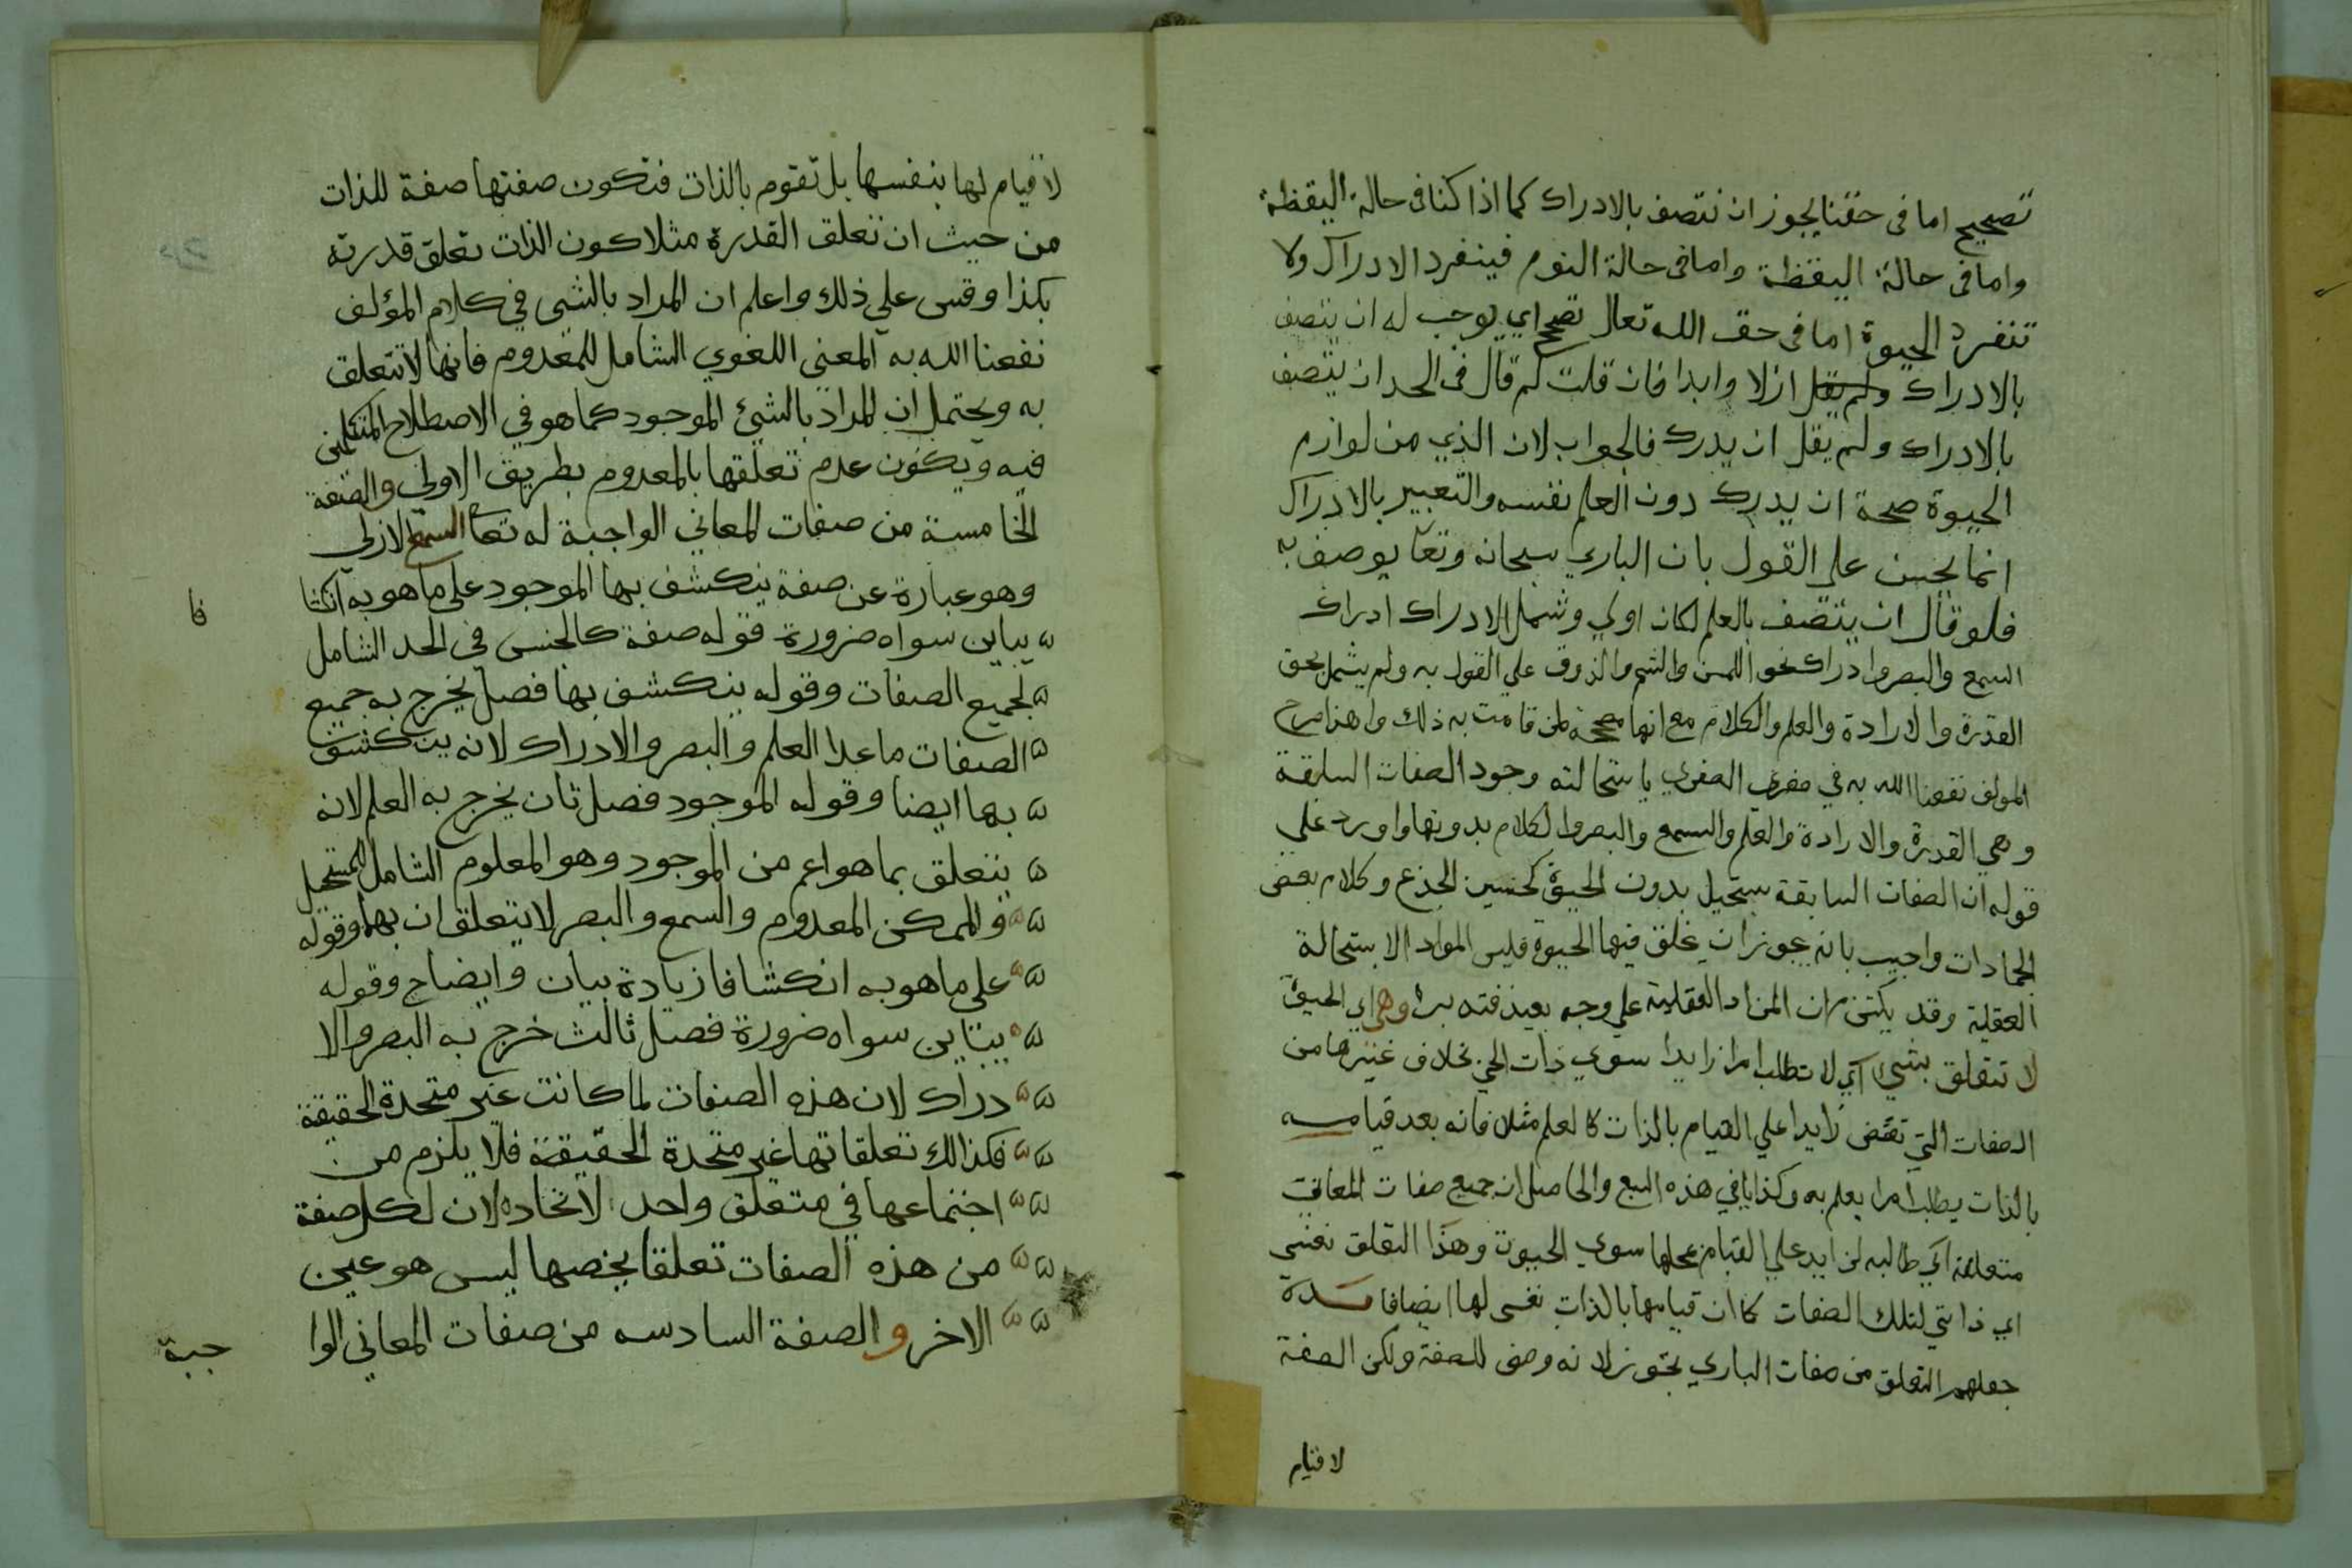 تصحيح اما فى حقنا يجوز ان نتصف بالادراك كما اذا كنا فى حالة اليقظة
واما فى حالة اليقظة واما فى حالة النوم فينفرد الادراك ولا
تنفرد الحيوة اما فى حق الله تعالى تصحح اي يوجب له ان يتصف
بالادراك ولم يقل ازلا وابدا فان قلت لم قال فى الحد ان يتصف
بالادراك ولم يقل ان يدرك فالجواب لان الذي من لوازم
الحيوة صحة ان يدرك دون العلم نفسه والتعبير بالادراك
انما يحسن على القول بان الباري سبحانه وتعا يوصف به
فلو قال ان يتصف بالعلم لكان اولي وشمل الادراك ادراك
السمع والبصر وادراك نحو اللمس والشم والذوق علي القول به ولم يشمل بحق
القدرة والارادة والعلم والكلام مع انها مصححة لمن قامت به ذلك ولهذا صرح
المولف نفعنا الله به في صغري الصغري باستحالته وجود الصفات السابقة
وهي القدرة والارادة والعلم والسمع والبصر والكلام بدونها واورد علي
قوله ان الصفات السابقة يستحيل بدون الحيوة كحنين الجذع وكلام بعض
الجمادات واجيب بانه يجوز ان يخلق فيها الحيوة فليس المواد الاستحالة
العقلية وقد يكتنز ان المزاد العقلية علي وجه بعيد فتدبره وهي اي الحيوة
لا تتعلق بشيء اي لا تطلب امرا زايدا سوي ذات الحي بخلاف غيرها من
الصفات التي تقتض زايدا علي القيام بالذات كالعلم مثلا فانه بعد قيامه
بالذات يطلب امرا يعلم به وكذا باقي هذه السبع والحاصل ان جميع صفات المعاني
متعلقة اي طالبه لزايد علي القيام بمحلها سوي الحيوة وهذا التعلق نفسي
اي ذاتي لتلك الصفات كما ان قيامها بالذات نفسي لها ايضا فا سدة
جعلهم التعلق من صفات الباري تجوز لانه وصف للصفة ولكن الصفة
لا قيام
لا قيام لها بنفسها بل تقوم بالذات فتكون صفتها صفة للذات
من حيث ان تعلق القدرة مثلا كون الذات تعلق قدرته
بكذا وقس علي ذلك واعلم ان المراد بالشي في كلام المؤلف
نفعنا الله به المعنى اللغوي الشامل للمعدوم فانها لا تتعلق
به ويحتمل ان المراد بالشيء الموجود كما هو في الاصطلاح المتكلمين
فيه ويكون عدم تعلقها بالمعدوم بطريق الاولي والصفة
الخامسة من صفات المعاني الواجبة له تعا السمع الازلي
وهو عبارة عن صفة ينكشف بها الموجود على ما هو به انكشا
فا
يباين سواه ضرورة قوله صفة كالجنس فى الحد الشامل
لجميع الصفات وقوله ينكشف بها فصل يخرج به جميع
الصفات ما عدا العلم والبصر والادراك لانه ينكشف
بها ايضا وقوله الموجود فصل ثان يخرج به العلم لانه
يتعلق بما هو اعم من الموجود وهو المعلوم الشامل للمستحيل
والممكن المعدوم والسمع والبصر لا يتعلقان بهما وقوله
على ما هو به انكشافا زيادة بيان وايضاح وقوله
يباين سواه ضرورة فصل ثالث خرج به البصر والا
دراك لان هذه الصفات لما كانت غير متحدة الحقيقة
فكذالك تعلقاتها غير متحدة الحقيقة فلا يلزم من
اجتماعها في متعلق واحد لاتحاده لان لكل صفة
من هذه الصفات تعلقا يخصها ليس هو عين
الاخر و الصفة السادسه من صفات المعاني الوا
جبة